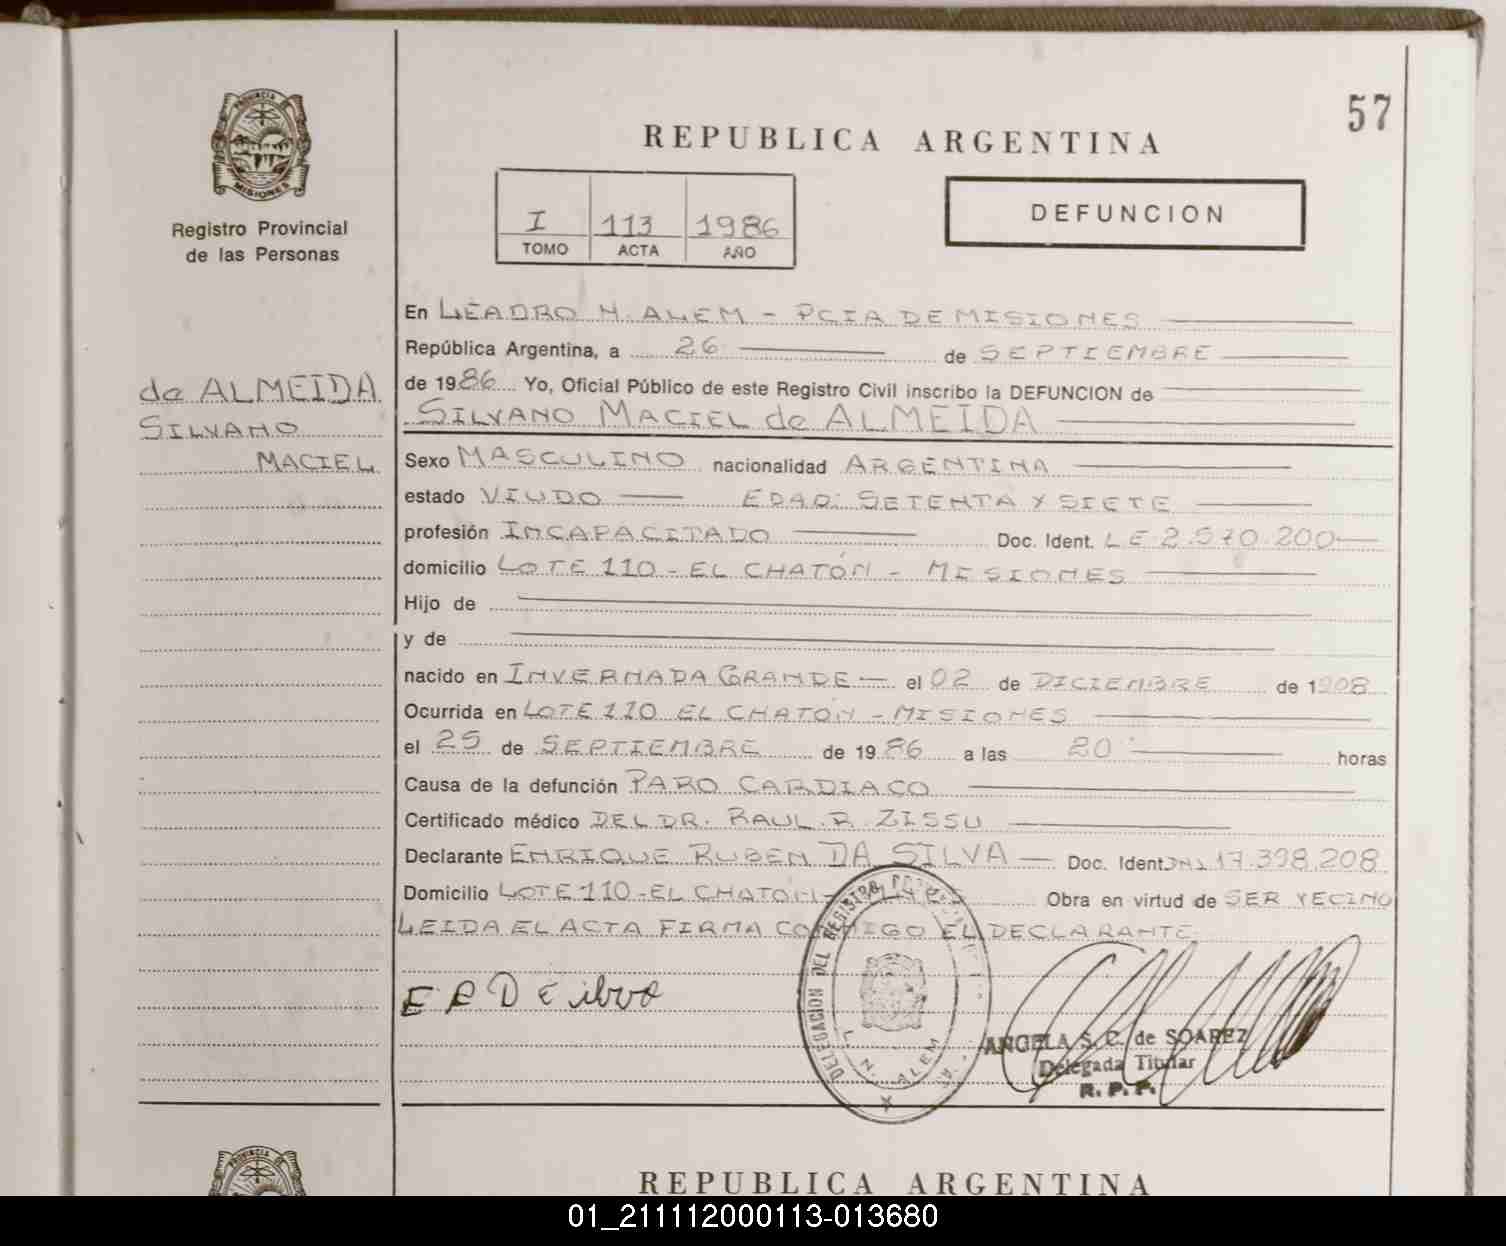 57
REPUBLICA ARGENTINA
PROVINCIA DE
MISIONES
Registro Provincial
de las Personas
I 113 1986
TOMO ACTA AÑO
DEFUNCION
de ALMEIDA
SILVANO
MACIEL
En LEADRO N. ALEM - PCIA DE MISIONES
República Argentina, a 26 de SEPTIEMBRE
de 1986 Yo, Oficial Público de este Registro Civil inscribo la DEFUNCION de
SILVANO MACIEL de ALMEIDA
Sexo MASCULINO nacionalidad ARGENTINA
estado VIUDO EDAD: SETENTA Y SIETE
profesión INCAPACITADO Doc. Ident. L E 2.570.200
domicilio LOTE 110 - EL CHATÓN - MISIONES
Hijo de
y de
nacido en INVERNADA GRANDE el 02 de DICIEMBRE de 1908
Ocurrida en LOTE 110 EL CHATÓN - MISIONES
el 25 de SEPTIEMBRE de 1986 a las 20 horas
Causa de la defunción PARO CARDIACO
Certificado médico DEL DR. RAUL R. ZISSU
Declarante ENRIQUE RUBEN DA SILVA Doc. Ident. DNI 17.398.208
Domicilio LOTE 110 - EL CHATÓN - Obra en virtud de SER VECINO
LEIDA EL ACTA FIRMA CONMIGO EL DECLARANTE
DELEGACION DEL REGISTRO
L. N. ALEM
ANGELA S. C. de SOAREZ
Delegada Titular
R. P. P.
PROVINCIA DE
REPUBLICA ARGENTINA
01_211112000113-013680